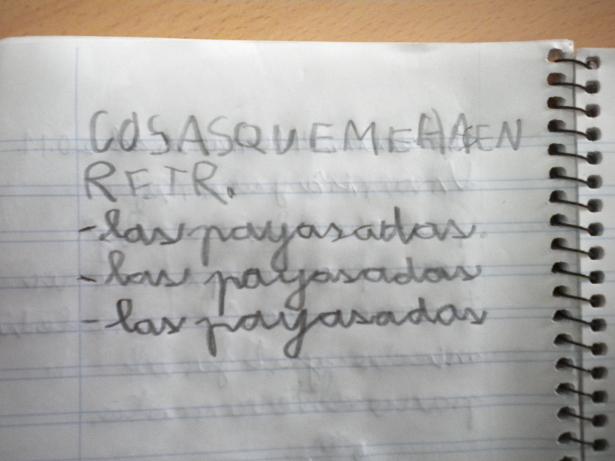 COSASQUEMEHAEN
REIR.
-las payasadas
-las payasadas
-las payasadas